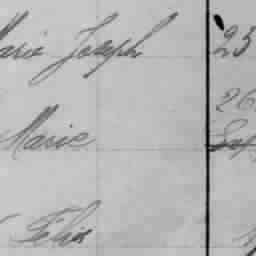 Marie Joseph 25
26
Marie
Felix